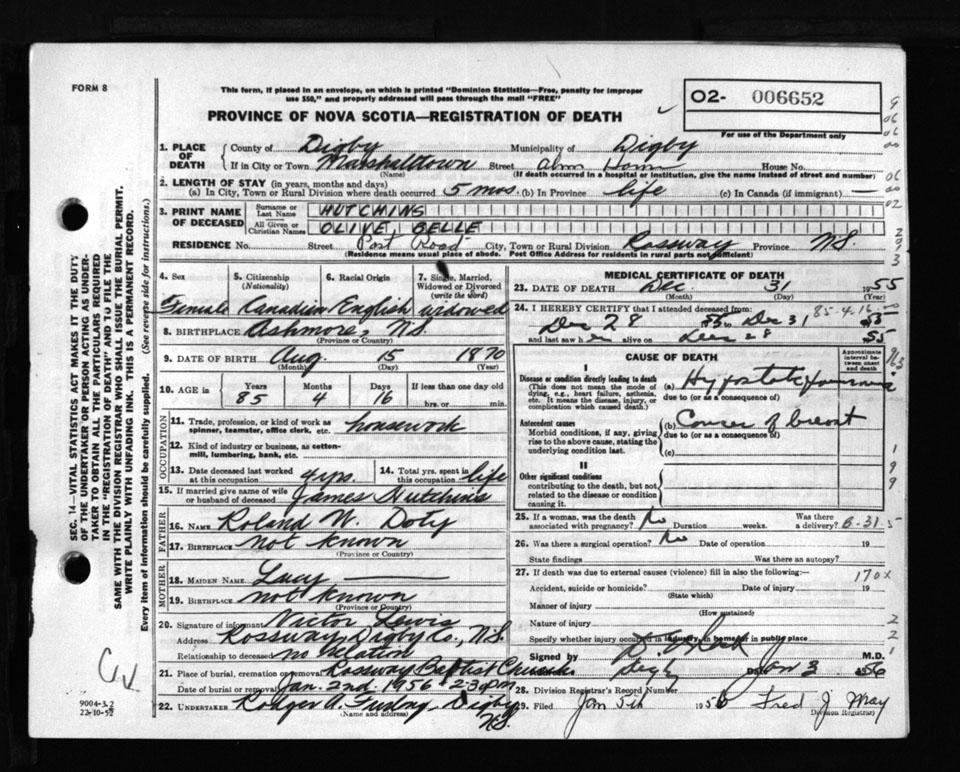 FORM 8
This form, if placed in an envelope, on which is printed "Dominion Statistics—Free, penalty for improper
use $50," and properly addressed will pass through the mail "FREE"
O2- 006652
For use of the Department only
PROVINCE OF NOVA SCOTIA—REGISTRATION OF DEATH
1. PLACE OF DEATH
County of Digby Municipality of Digby
If in City or Town Marshalltown Street Alms House No.
(Name) (If death occurred in a hospital or institution, give the name instead of street and number)
2. LENGTH OF STAY (in years, months and days)
(a) In City, Town or Rural Division where death occurred 5 mos. (b) In Province life (c) In Canada (if immigrant) —
3. PRINT NAME OF DECEASED
Surname or Last Name HUTCHINS
All Given or Christian Names OLIVE, BELLE
RESIDENCE No. Street Post Road City, Town or Rural Division Rossway Province N.S.
(Residence means usual place of abode. Post Office Address for residents in rural parts not sufficient)
4. Sex Female
5. Citizenship (Nationality) Canadian
6. Racial Origin English
7. Single, Married, Widowed or Divorced (write the word) widowed
8. BIRTHPLACE Ashmore, N.S.
(Province or Country)
9. DATE OF BIRTH Aug. 15 1870
(Month) (Day) (Year)
10. AGE in Years 85 Months 4 Days 16 If less than one day old hrs. or min.
OCCUPATION
11. Trade, profession, or kind of work as spinner, teamster, office clerk, etc. housework
12. Kind of industry or business, as cotton-mill, lumbering, bank, etc.
13. Date deceased last worked at this occupation 4 yrs.
14. Total yrs. spent in this occupation life
15. If married give name of wife or husband of deceased James Hutchins
FATHER
16. NAME Roland W. Doty
17. BIRTHPLACE not known
(Province or Country)
MOTHER
18. MAIDEN NAME Lucy —
19. BIRTHPLACE not known
(Province or Country)
20. Signature of informant Victor Lewis
Address Rossway, Digby Co., N.S.
Relationship to deceased no relation
21. Place of burial, cremation or removal Rossway Baptist Church
Date of burial or removal Jan. 2nd. 1956 2:30 pm
22. UNDERTAKER Rodger A. Furlong, Digby N.S.
(Name and address)
MEDICAL CERTIFICATE OF DEATH
23. DATE OF DEATH Dec. 31 1955
(Month) (Day) (Year)
24. I HEREBY CERTIFY that I attended deceased from:
85-4-16
Dec 28 55 to Dec 31 55
and last saw her alive on Dec 28 55
CAUSE OF DEATH
Approximate interval between onset and death
I
Disease or condition directly leading to death
(This does not mean the mode of dying, e.g., heart failure, asthenia, etc. It means the disease, injury, or complication which caused death.)
(a) Hypostatic Pneumonia
due to (or as a consequence of)
Antecedent causes
Morbid conditions, if any, giving rise to the above cause, stating the underlying condition last.
(b) Cancer of breast
due to (or as a consequence of)
(c)
II
Other significant conditions
contributing to the death, but not related to the disease or condition causing it.
25. If a woman, was the death associated with pregnancy? No Duration weeks. Was there a delivery? B-31-5
26. Was there a surgical operation? No Date of operation 19
State findings Was there an autopsy?
27. If death was due to external causes (violence) fill in also the following:— 170X
Accident, suicide or homicide? Date of injury 19
(State which)
Manner of injury
(How sustained)
Nature of injury
Specify whether injury occurred in industry, in home or in public place
Signed by M.D.
Jan 3 56
28. Division Registrar's Record Number
29. Filed Jan 1956 Fred J May
Division Registrar)
SEC. 14—VITAL STATISTICS ACT MAKES IT THE DUTY
OF THE UNDERTAKER OR PERSON ACTING AS UNDER-
TAKER TO OBTAIN ALL THE PARTICULARS REQUIRED
IN THE "REGISTRATION OF DEATH" AND TO FILE THE
SAME WITH THE DIVISION REGISTRAR WHO SHALL ISSUE THE BURIAL PERMIT.
WRITE PLAINLY WITH UNFADING INK. THIS IS A PERMANENT RECORD.
Every item of information should be carefully supplied. (See reverse side for instructions.)
9004-3.2
22-10-52